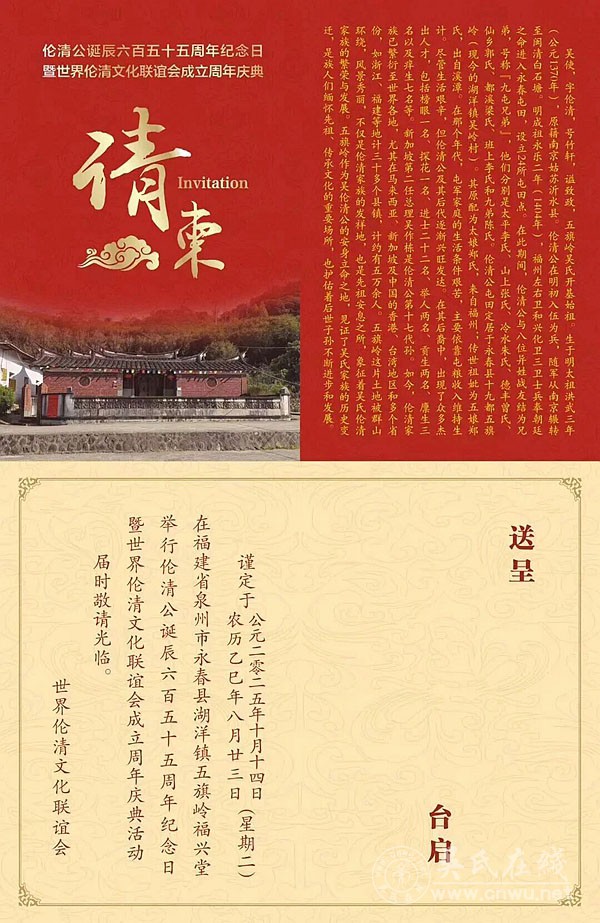 伦清公诞辰六百五十五周年纪念日
暨世界伦清文化联谊会成立周年庆典
请柬
Invitation
吴使，字伦清，号竹轩，谥敦政，五旗岭吴氏开基始祖。生于明太祖洪武三年
（公元1370年），原籍南京姑苏沂水县。伦清公在明初入伍为兵，随军从南京辗转
至闽清白石塘。明成祖永乐二年（1404年），福州左右卫和兴化卫三卫士兵奉朝廷
之命进入永春屯田，设立24所屯田点。在此期间，伦清公与八位异姓战友结为兄
弟，号称「九屯兄弟」，他们分别是太平李氏、山上张氏、冷水朱氏、德丰曾氏、
仙乡郭氏、都溪梁氏、班上李氏和九弟陈氏。伦清公屯田定居于永春县十九都五旗
岭（现今的湖洋镇吴岭村）。其原配为太娘郑氏，来自福州，传世祖妣为五娘郑
氏，出自溪潭，在那个年代，屯军家庭的生活条件艰苦，主要依靠屯粮收入维持生
计。尽管生活艰辛，但伦清公及其后代逐渐兴旺发达。在其后裔中，出现了众多杰
出人才，包括榜眼一名、探花一名、进士二十二名、举人两名、贡生两名、廪生三
名以及庠生七名等。新加坡第二任总理吴作栋是伦清公第十七代孙。如今，伦清家
族已繁衍至世界各地，尤其在马来西亚、新加坡及中国的香港、台湾地区和多个省
份，如浙江、福建等地计三十多个县镇，计约有五万余人。五旗岭这片土地被群山
环绕，风景秀丽，不仅是伦清家族的发祥地，也是先祖安息之所，象征着吴氏伦清
家族的繁荣与发展。五旗岭作为吴伦清公的安身立命之地，见证了吴氏家族的历史变
迁，是族人们缅怀先祖、传承文化的重要场所，也护佑着后世子孙不断进步和发展。
送呈
台启
谨定于 公元二零二五年十月十四日
农历乙巳年八月廿三日（星期二）
在福建省泉州市永春县湖洋镇五旗岭福兴堂
举行伦清公诞辰六百五十五周年纪念日
暨世界伦清文化联谊会成立周年庆典活动
届时敬请光临。
世界伦清文化联谊会
吴氏在线
www.cnwu.net